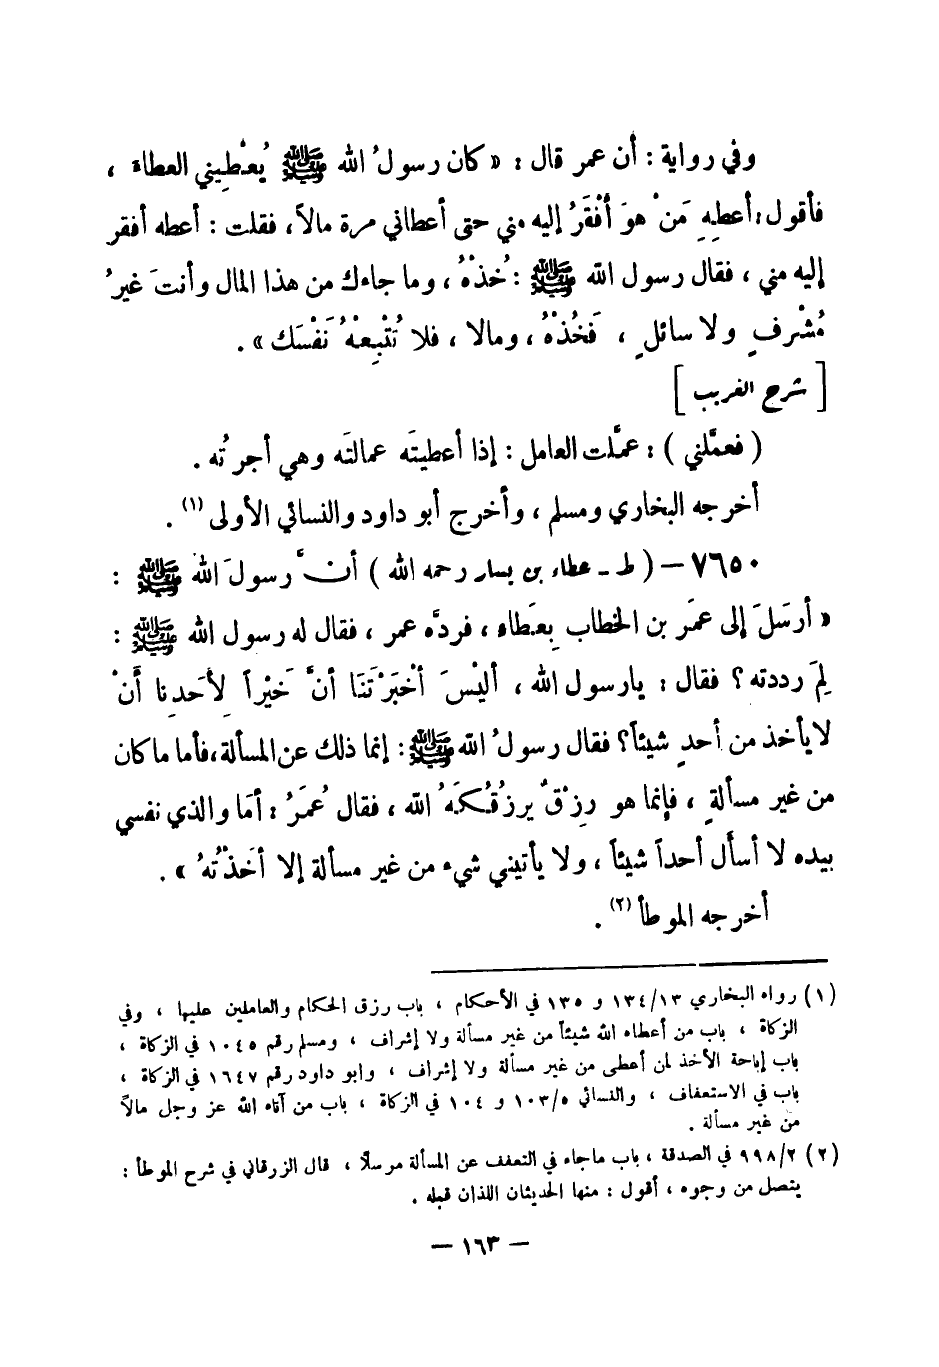 وفي رواية : أن عمر قال : « كان رسولُ الله ﷺ يُعْطِيني العطاءَ ،
فأقول : أعطِهِ مَنْ هوَ أفْقَرُ إليه مني حتى أعطاني مرة مالاً ، فقلت : أعطه أفقر
إليه مني ، فقال رسول الله ﷺ : خُذْهُ ، وما جاءك من هذا المال وأنتَ غيرُ
مُشْرِفٍ ولا سائلٍ ، فَخُذْهُ ، ومالا ، فلا تُتْبِعْهُ نَفْسَك » .
[ شرح الغريب ]
( فعمَّلني ) : عمَّلت العامل : إذا أعطيتَه عمالتَه وهي أجرتُه .
أخرجه البخاري ومسلم ، وأخرج أبو داود والنسائي الأولى (١) .
٧٦٥٠ – ( ط - عطاء بن يسار رحمه الله ) أنَّ رسولَ الله ﷺ :
« أرسَلَ إلى عمَر بن الخطاب بِعَطاءٍ ، فردَّه عمر ، فقال له رسول الله ﷺ :
لِمَ رددته ؟ فقال : يارسول الله ، أليْسَ أخْبَرْتَنَا أنَّ خَيْراً لِأَحَدِنا أنْ
لا يأخذ من أحدٍ شيئاً ؟ فقال رسولُ الله ﷺ : إنما ذلك عن المسألة ، فأما ما كان
من غير مسألةٍ ، فإنما هو رِزْقٌ يرزُقُكَهُ الله ، فقال عُمَرُ : أمَا والذي نفسي
بيده لا أسأَل أحداً شيئاً ، ولا يأتيني شيء من غير مسألة إلا أخَذْتُهُ » .
أخرجه الموطأ (٢) .
(١) رواه البخاري ١٣٤/١٣ و ١٣٥ في الأحكام ، باب رزق الحكام والعاملين عليها ، وفي
الزكاة ، باب من أعطاه الله شيئاً من غير مسألة ولا إشراف ، ومسلم رقم ١٠٤٥ في الزكاة ،
باب إباحة الأخذ لمن أعطى من غير مسألة ولا إشراف ، وابو داود رقم ١٦٤٧ في الزكاة ،
باب في الاستعفاف ، والنسائي ١٠٣/٥ و ١٠٤ في الزكاة ، باب من آتاه الله عز وجل مالاً
من غير مسألة .
(٢) ٩٩٨/٢ في الصدقة ، باب ماجاء في التعفف عن المسألة مرسلاً ، قال الزرقاني في شرح الموطأ :
يتصل من وجوه ، أقول : منها الحديثان اللذان قبله .
– ١٦٣ –